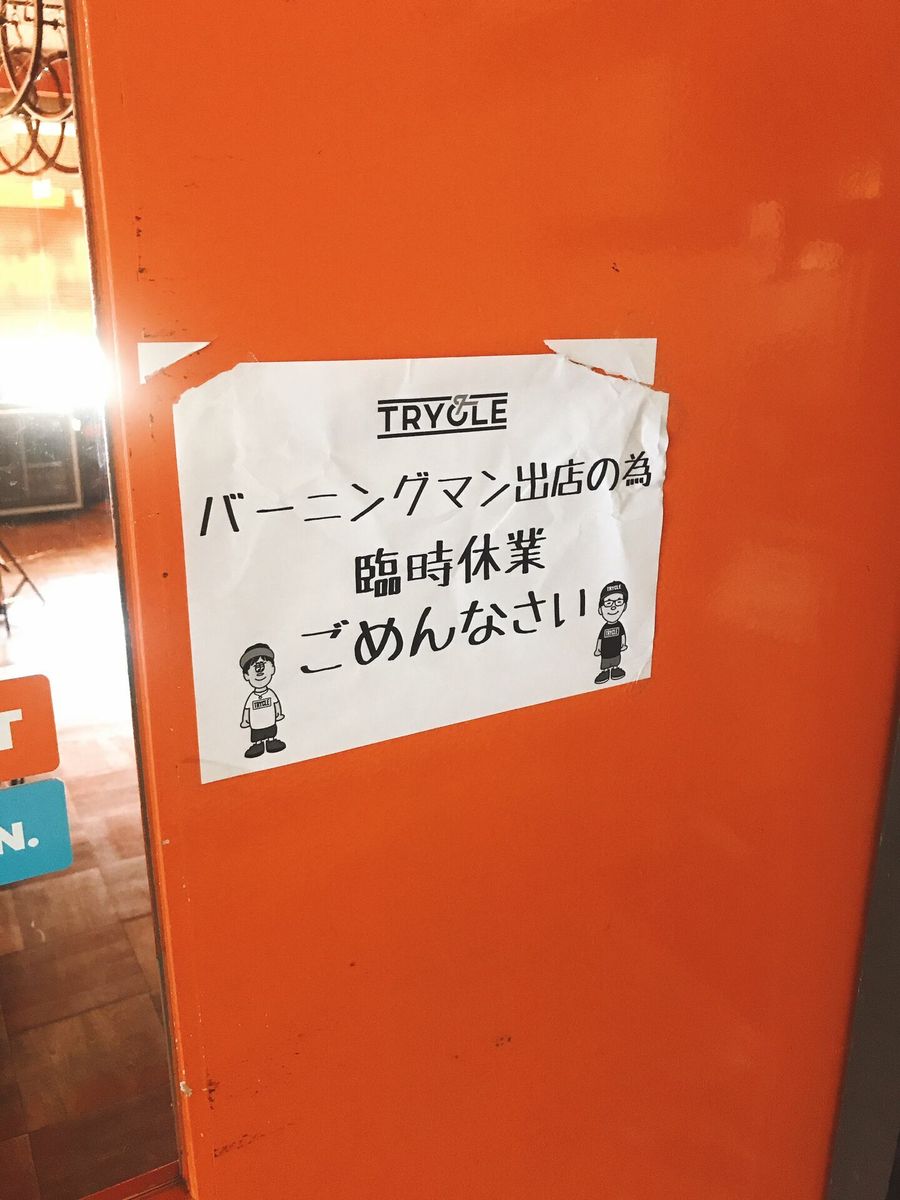 TRYCLE
バーニングマン出店の為
臨時休業
ごめんなさい
TRYCLE
TRYCLE
TRYCLE
T
N.